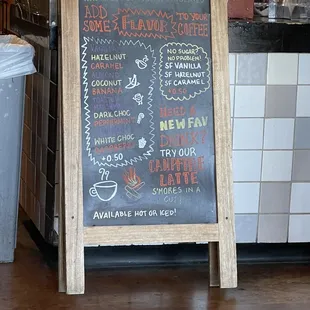 ADD SOME FLAVOR TO YOUR COFFEE
HAZELNUT
CARAMEL
COCONUT
BANANA
DARK CHOC
PEPPERMINT
WHITE CHOC
+0.50
NO SUGAR?
NO PROBLEM!
SF VANILLA
SF HAZELNUT
SF CARAMEL
+0.50
NEED A
NEW FAV
DRINK?
TRY OUR
CAMPFIRE
LATTE
S'MORES IN A
AVAILABLE HOT OR ICED!